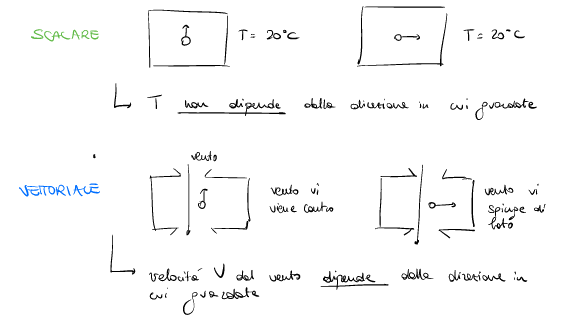 SCALARE
T = 20°C
T = 20°C
T non dipende dalla direzione in cui guardate
vento
VETTORIALE
vento vi
viene contro
vento vi
spinge di
lato
velocità V del vento dipende dalla direzione in
cui guardate